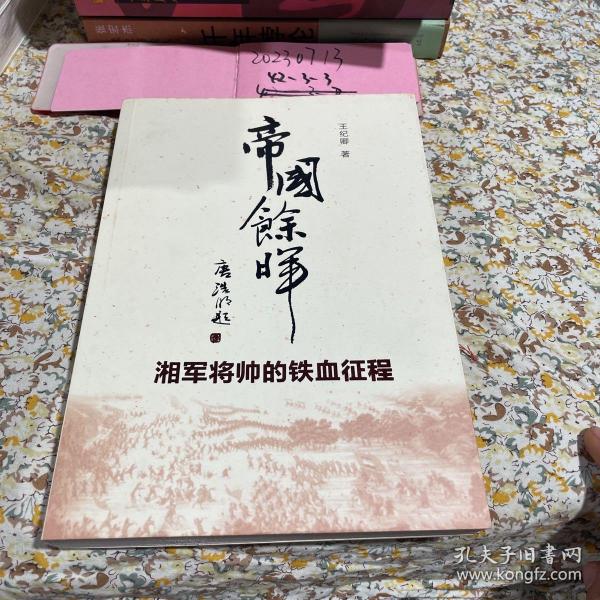 20230713
42-3-3
王纪卿 著
帝國餘暉
唐浩明題
湘军将帅的铁血征程
孔夫子旧书网
www.kongfz.com